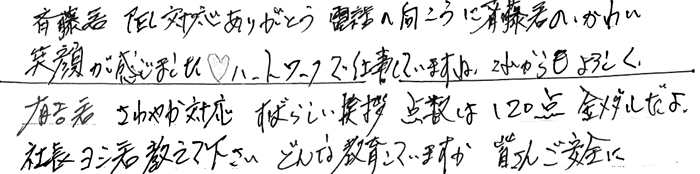 斉藤君 TEL対応ありがとう 電話の向こうに斉藤君のかわいい
笑顔が感じました♡ハートワークで仕事していますね。これからもよろしく。
有吉君 さわやか対応 すばらしい挨拶 点数は120点 金メダルだよ。
社長ヨシ君教えて下さい どんな教育していますか 皆さんご安全に